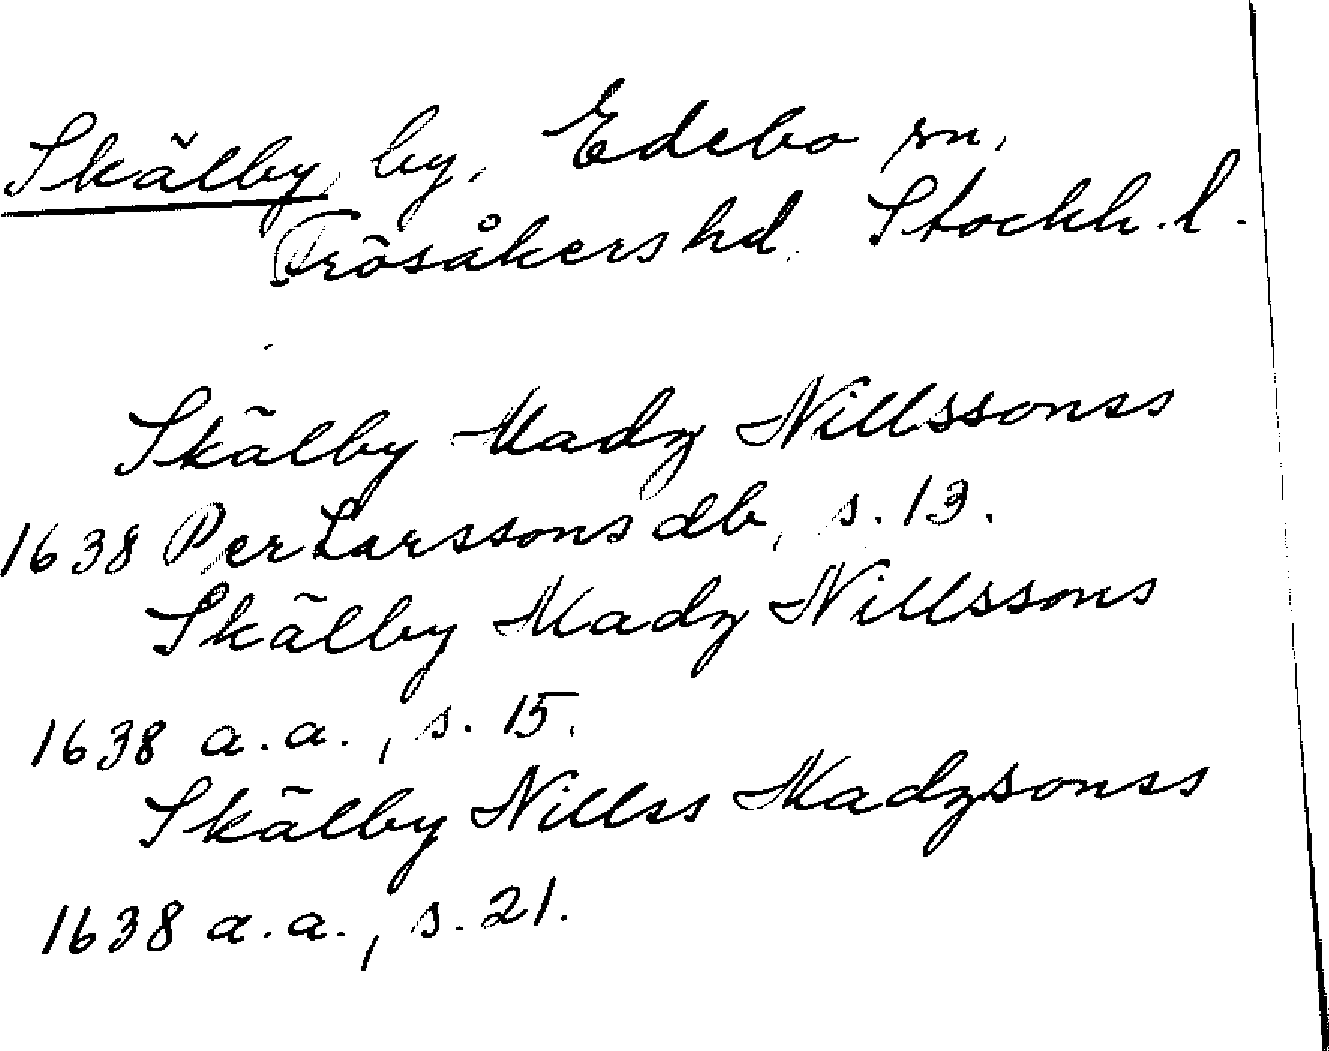 Skälby, by, Edebo sn,
Frösåkers hd. Stockh. l.
Skälby Madz Nillssonss
1638 Per Larssons db, s. 13.
Skälby Madz Nillssons
1638 a.a., s. 15.
Skälby Nillss Madzsonss
1638 a.a., s. 21.